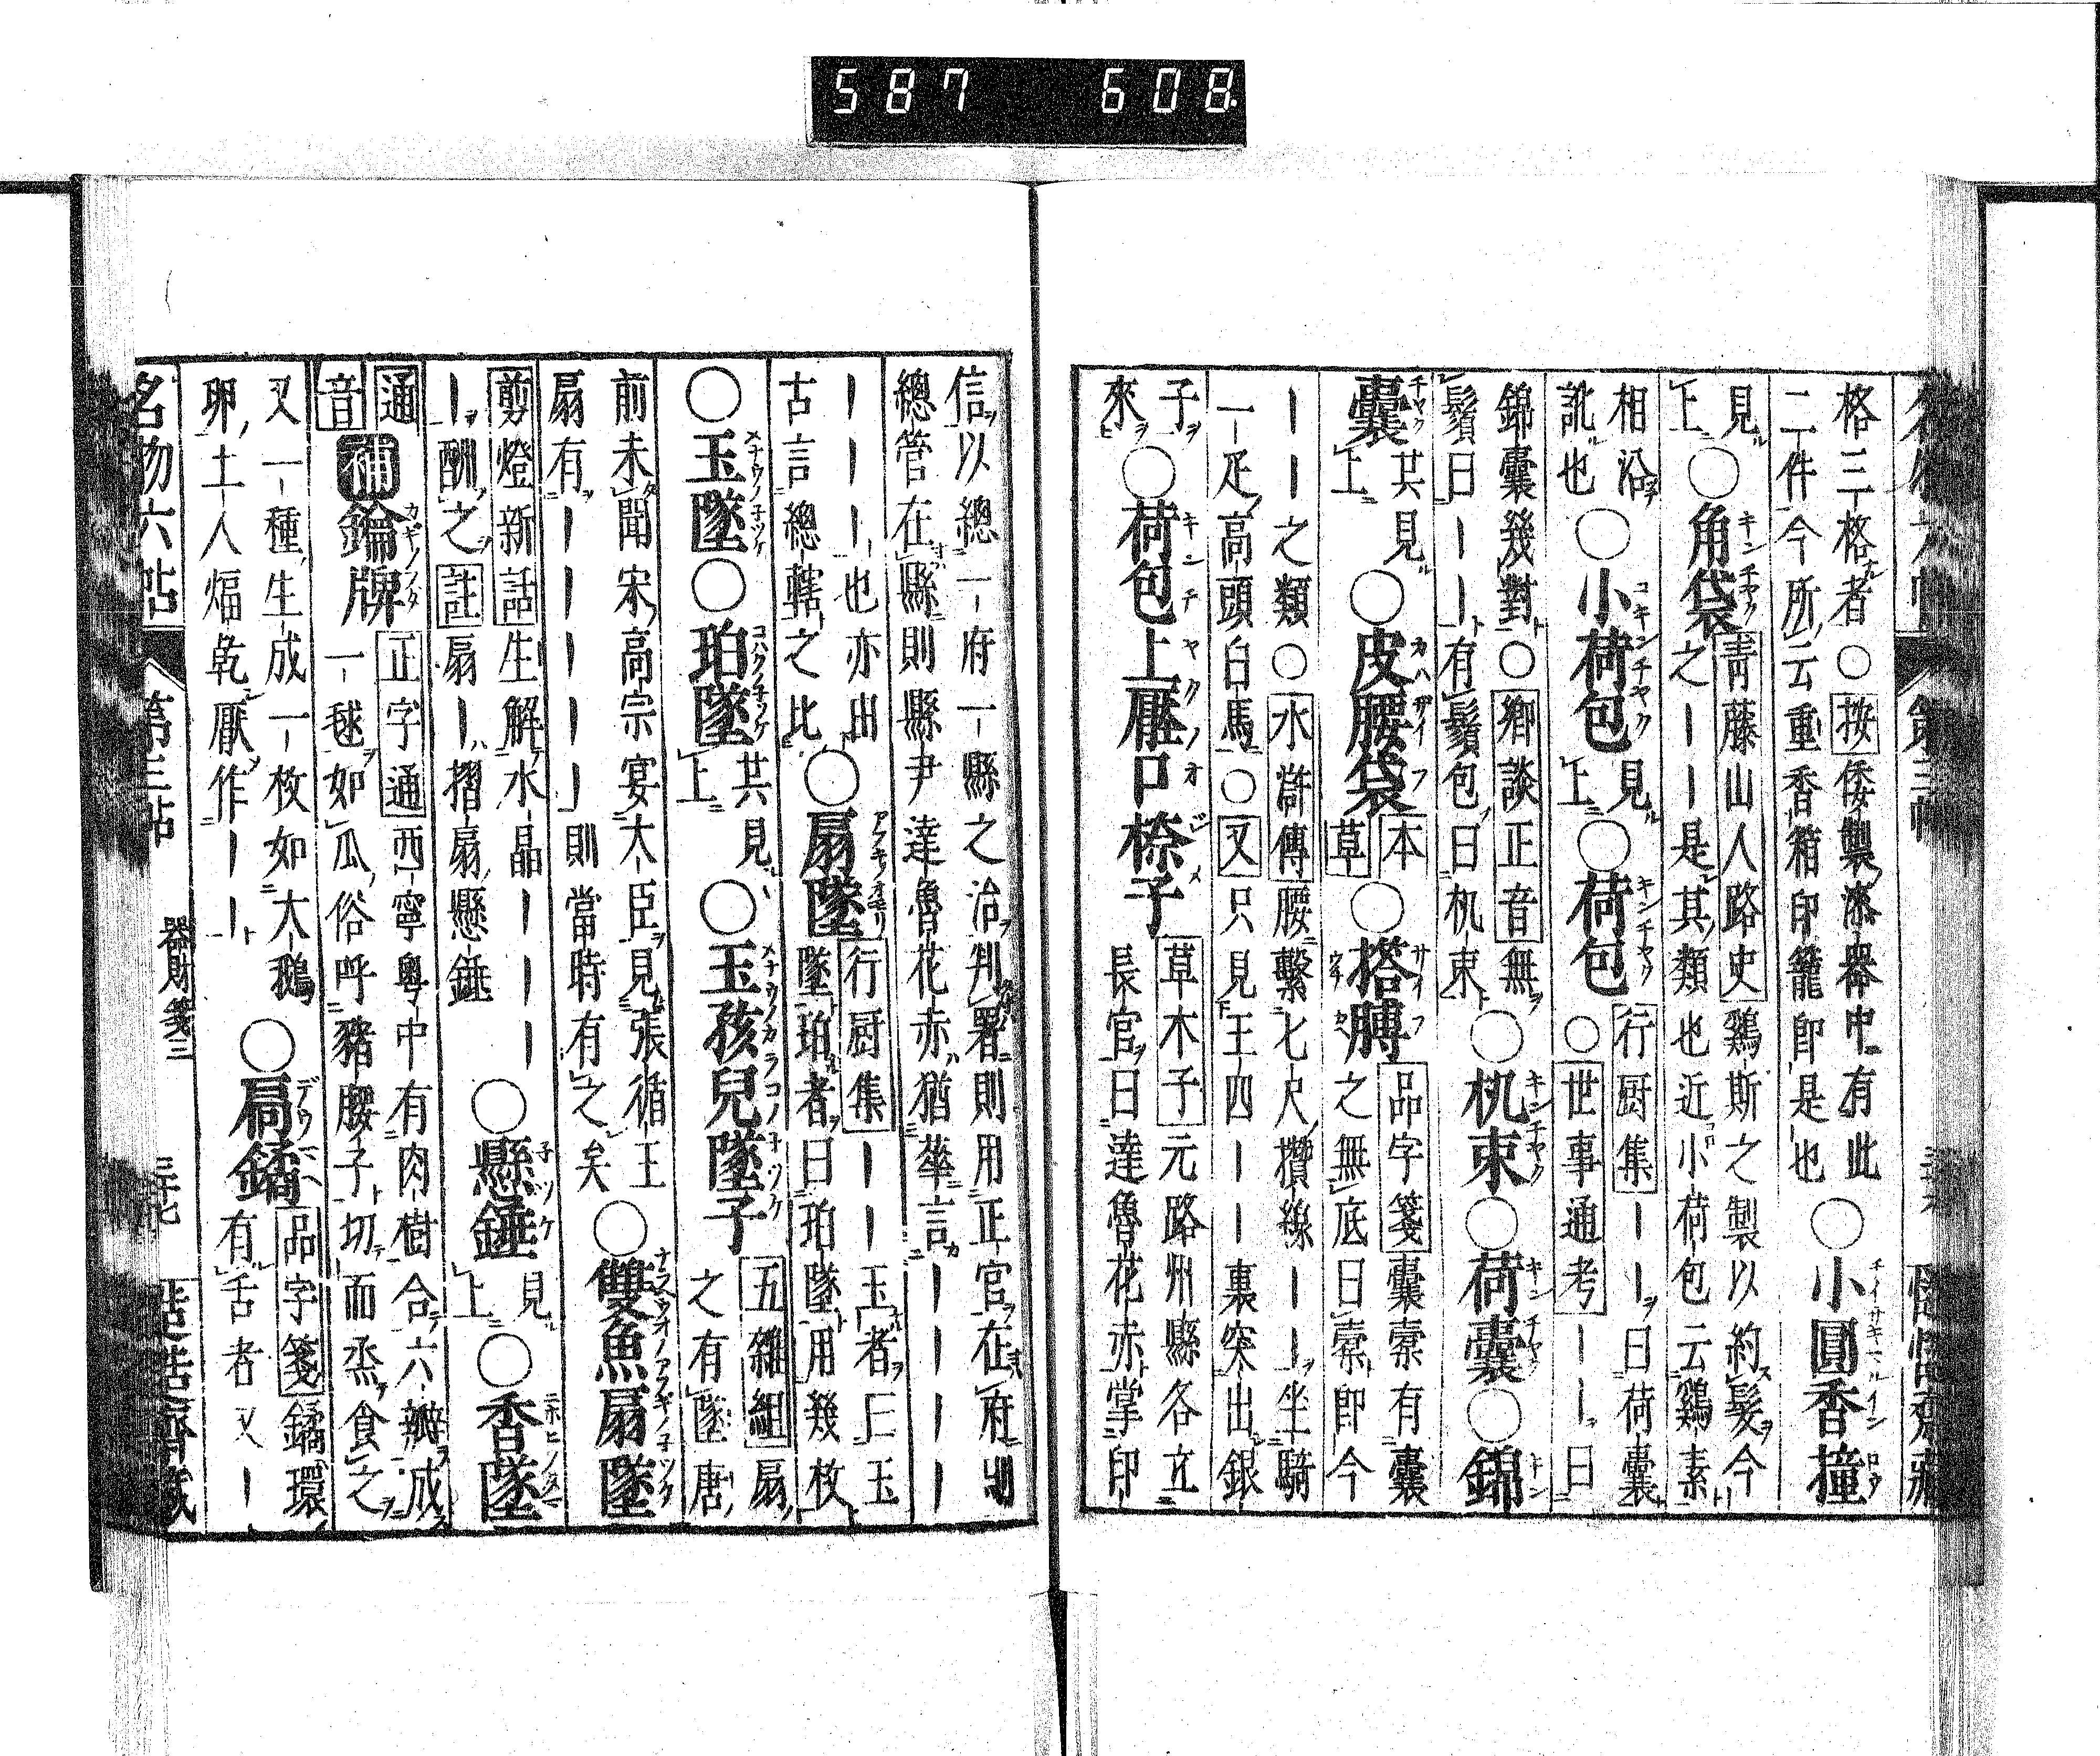 格三格者○按倭製漆器中有此
二件今所云重香箱印籠即是也
○小圓香撞
見
上
○角袋
青藤山人路史鷄斯之製以約髮今
之――是其類也近小荷包云鷄素
相沿
訛也
○小荷包
見
上
○荷包
行厨集――曰荷囊
○世事通考――曰
錦囊幾對○鄉談正音無
鬚曰――有鬚包曰机束
○机束○荷囊○錦
囊
共見
上
○皮腰袋
本
草
○搭膊
品字箋囊索有囊
之無底曰橐即今
――之類○水滸傳腰繫七尺攢線――坐騎
一疋高頭白馬○又只見王四――裏突出銀
子
來
○荷包上壓口㮈子
草木子元路州縣各立
長官曰達魯花赤掌印
信以總一府一縣之治判署則用正官在府則
總管在縣則縣尹達魯花赤猶華言――――
―――也亦出
古言總轄之比
○扇墜
行厨集――玉者曰玉
墜珀者曰珀墜用幾枚
○玉墜○珀墜
共見
上
○玉孩兒墜子
五雜組扇
之有墜唐
前未聞宋高宗宴大臣見張循王
扇有――――則當時有之矣
○雙魚扇墜
剪燈新話生解水晶――
―酬之註扇―摺扇懸錘
○懸錘
見
上
○香墜
通
音
補鑰牌
正字通西寧粵中有肉樹合六瓣成
一毬如瓜俗呼豬腰子切而烝食之
又一種生成一枚如大鵝
卵土人煏乾厭作――
○扃鐍
品字箋鐍環
有舌者又―
名物六帖 第三帖 器財箋三 三十七
587 608